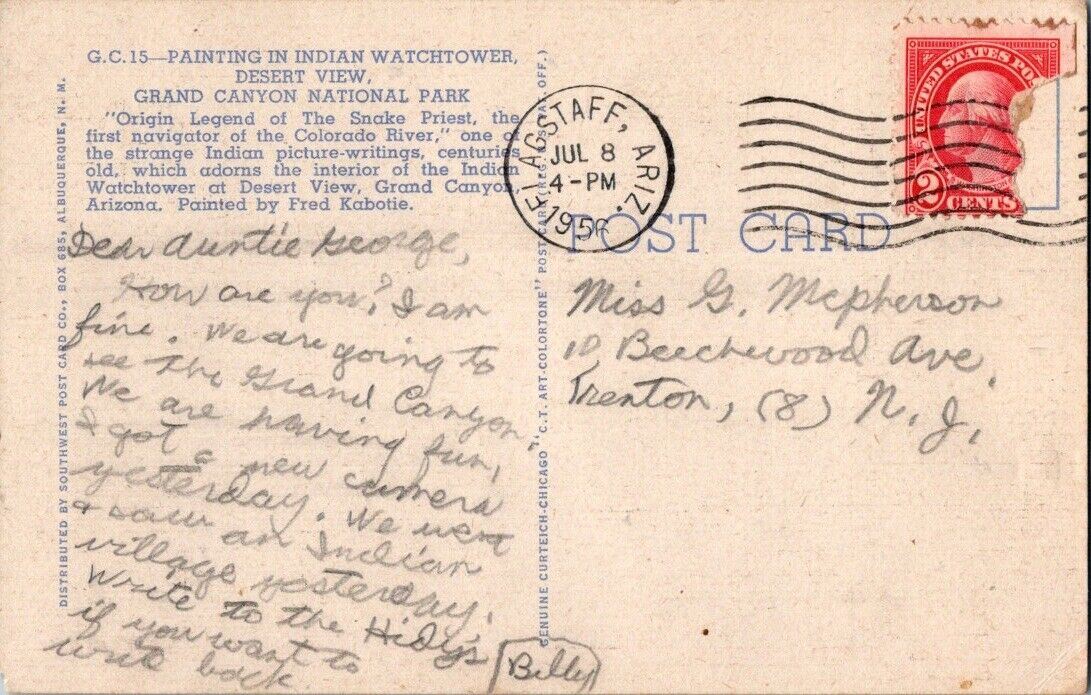 G.C.15—PAINTING IN INDIAN WATCHTOWER,
DESERT VIEW,
GRAND CANYON NATIONAL PARK
"Origin Legend of The Snake Priest, the
first navigator of the Colorado River," one of
the strange Indian picture-writings, centuries
old, which adorns the interior of the Indian
Watchtower at Desert View, Grand Canyon,
Arizona. Painted by Fred Kabotie.
Dear Auntie George,
How are you? I am
fine. We are going to
see the Grand Canyon.
We are having fun,
I got a new camera
yesterday. We went
& saw an Indian
village yesterday.
Write to the Hidy's
if you want to
write back.
Billy
DISTRIBUTED BY SOUTHWEST POST CARD CO., BOX 685, ALBUQUERQUE, N. M.
GENUINE CURTEICH-CHICAGO "C.T. ART-COLORTONE" POST CARD (REG. U.S. PAT. OFF.)
FLAGSTAFF, ARIZ.
JUL 8
4-PM
1956
UNITED STATES POS
2 CENTS
POST CARD
Miss G. Mcpherson
10 Beechwood Ave.
Trenton, (8) N. J.